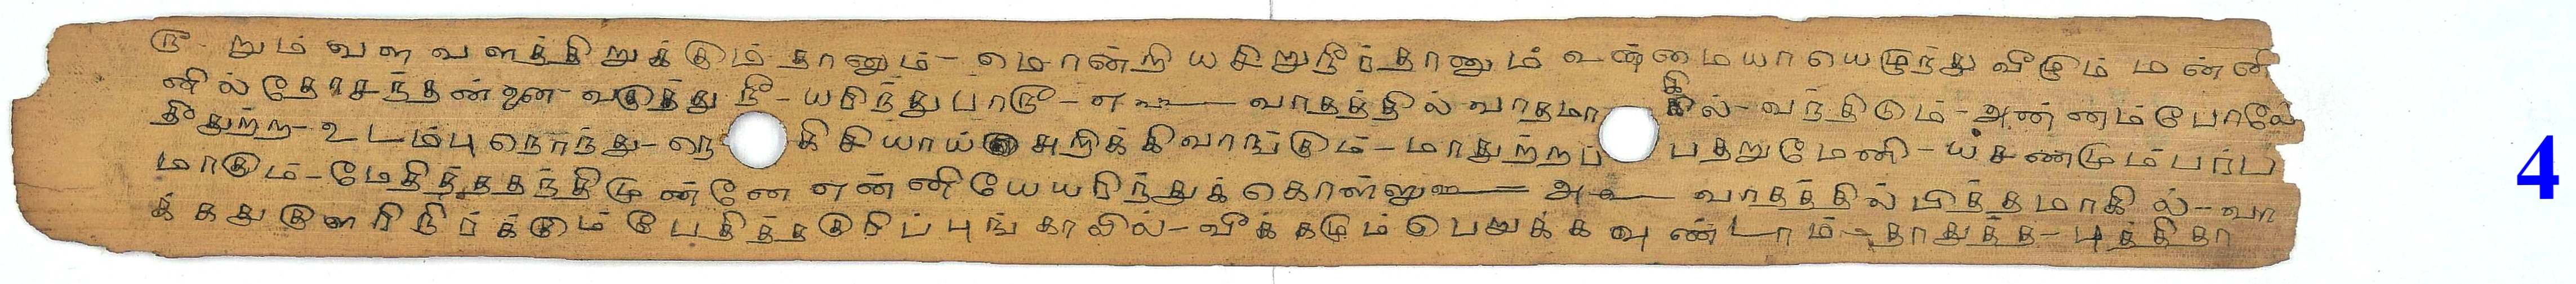 டு றும் வள வளத்திறுக்கும் தானும்- மொன்றி யசிறுநீர்தானும் வண்மையாயெழுந்து வீழும் மன்னி
னில் தோசந்தன்னை வகுத்து நீ- யறிந்து பாரு- வாதத்தில் வாதமாகில்- வந்திடும்- அண்னம்போலே
தீதுற்ற- உடம்பு நொந்து- கிசியாய் அறிக்கிவாங்கும்- மாதுற்றப் பதறுமேனி-
மாகும்- மேதித்ததந்திமுன்னே என்னியேயறிந்துக் கொள்ளு வாதத்தில் பித்தமாகில்- வா
க்கது குளறிநிர்க்கும் பேதித்தகுறிப்புங் காலில்- வீக்கமும் பெறுக்கவுண்டாம்- தாதுத்த- புத்திதா
4